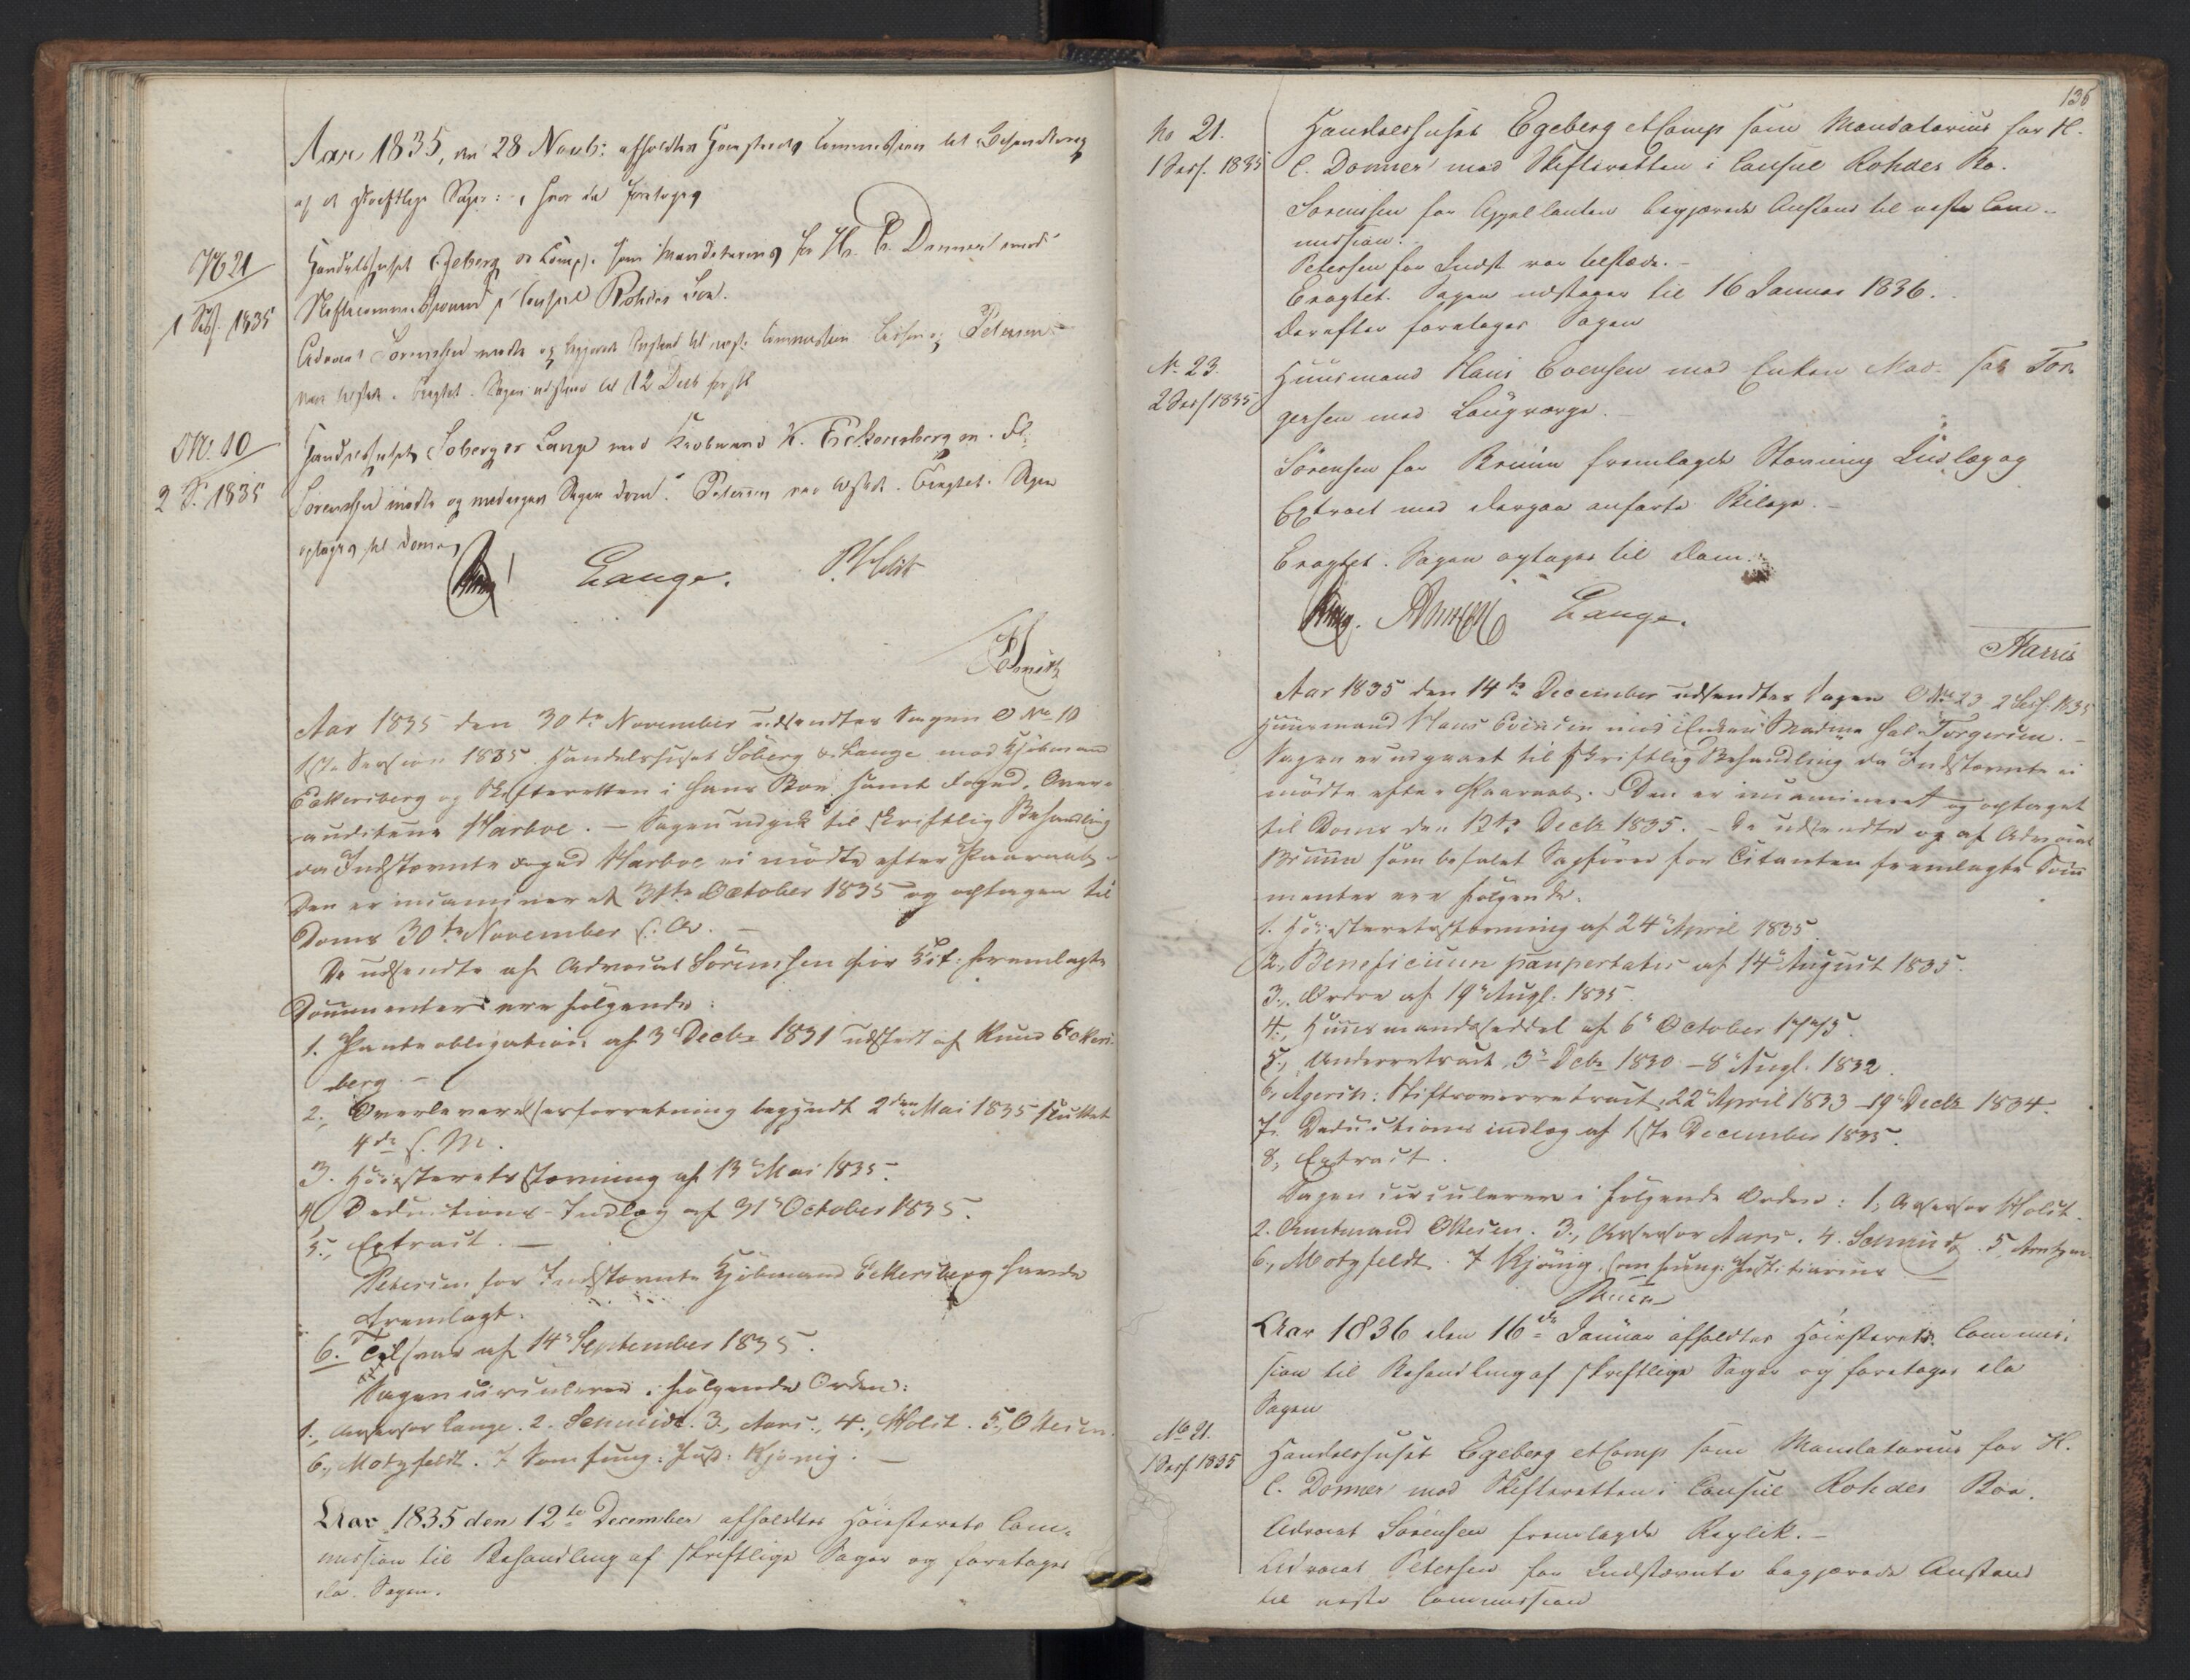 Aar 1835, den 28 Novb: afholdtes Høiesterets Commission til Behandling
af de skriftlige Sager: hvor da foretoges
No 21
1 Sess. 1835
Handelshuset Egeberg & Comp. som Mandatarius for H. C. Donner mod
Skiftecommissionen i Consul Rohdes Boe.
Advocat Sørenssen mødte og begjerede Anstand til næste Commission. Petersen
var tilstede. Eragtet. Sagen udstaaer til 12 Decb
No. 10
2 S. 1835
Handelshuset Søberg & Lange mod Kjøbmand K. Eckersberg m. Fl.
Sørenssen mødte og Sagen Petersen var tilstede. Eragtet. Sagen
optages til Doms
Lange. P. Holst
Aar 1835 den 30te November udsendtes Sagen No 10
1ste Session 1835. Handelshuset Søberg & Lange mod Kjøbmand
Eckersberg og Skifteretten i hans Boe samt Foged, Over-
auditeur Harboe. – Sagen udgik til skriftlig Behandling
da Indstævnte Foged Harboe ei mødte efter Paaraab.
Den er incamineret 31te October 1835 og optagen til
Doms 30te November s. A. –
De udsendte af Advocat Sørenssen for Cit: fremlagte
Documenter ere følgende:
1. Panteobligation af 3 Decbr 1831 udstedt af Knud Eckers-
berg. –
2., Overleverelsesforretning begyndt 2den Mai 1835 sluttet
4de s. M.
3. Høiesteretsstævning af 13 Mai 1835.
4, Deductions-Indlæg af 31 October 1835.
5., Extract. –
Petersen for Indstævnte Kjøbmand Eckersberg havde
fremlagt.
6. Tilsvar af 14 September 1835.
Sagen circulerer i følgende Orden:
1., Assessor Lange. 2. Schmidt. 3., Aars., 4., Holst. 5., Ottesen.
6., Motzfeldt. 7 Som fung: Just: Kjønig. –
Aar 1835 den 12te December afholdtes Høiesterets Com-
mission til Behandling af skriftlige Sager og foretoges
da Sagen.
136
No 21.
1 Sess. 1835
Handelshuset Egeberg et Comp som Mandatarius for H.
C. Donner mod Skifteretten i Consul Rohdes Bo.
Sørenssen for Appellanten begjærede Anstand til næste Com-
mission.
Petersen for Indst. var tilstede. –
Eragtet. Sagen udstaaer til 16 Januar 1836.
Derefter foretoges Sagen
No 23.
2 Sess 1835
Huusmand Hans Evensen mod Enken Mad. sal. Tor-
gersen med Laugværge. –
Sørensen for Bruun fremlagde Stævning Indlæg og
Extract med derpaa anførte Bilage. –
Eragtet. Sagen optages til Dom.
Lange.
Aar 1835 den 14de December udsendtes Sagen No 23 2 Sess. 1835
Huusmand Hans Evensen mod Enken Madme sal. Torgersen. –
Sagen er udgaaet til skriftlig Behandling da Indstævnte ei
mødte efter Paaraab. Den er incamineret og optaget
til Doms den 12te Decbr 1835. – De udsendte og af Advocat
Bruun som befalet Sagfører for Citanten fremlagte Docu
menter ere følgende.
1. Høiesteretsstævning af 24 April 1835
2., Beneficium paupertatis af 14 August 1835.
3., Ordre af 19 Augt. 1835.
4., Huusmandsseddel af 6 October 1775.
5., Underretsact, 3 Decbr 1830 – 8 Augt. 1832.
6, Agersh: Stiftsoverretsact, 22 April 1833 – 19 Decbr 1834.
7. Deductions indlæg af 1ste December 1835.
8, Extract.
Sagen circulerer i følgende Orden: 1, Assessor Holst.
2. Amtmand Ottesen. 3., Assessor Aars. 4. Schmidt. 5
6., Motzfeldt. 7 Kjønig, som fung: Justitiarius –
Aar 1836 den 16de Januar afholdtes Høiesterets Commis-
sion til Behandling af skriftlige Sager og foretoges da
Sagen
No 21.
1 Sess. 1835
Handelshuset Egeberg et Comp som Mandatarius for H.
C. Donner mod Skifteretten i Consul Rohdes Boe.
Advocat Sørensen fremlagde Replik. –
Advocat Petersen for Indstævnte begjærede Anstand
til næste Commission